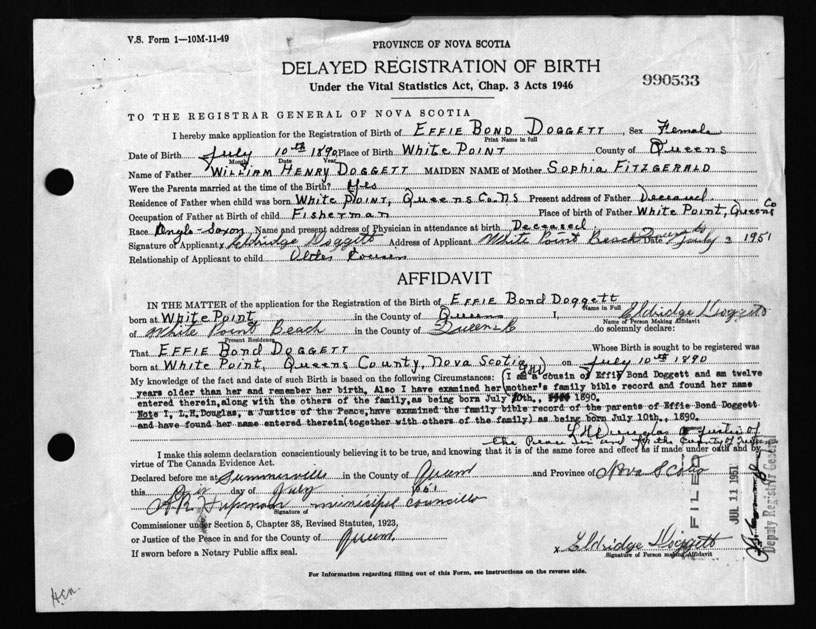 V.S. Form 1—10M-11-49
PROVINCE OF NOVA SCOTIA
DELAYED REGISTRATION OF BIRTH
990533
Under the Vital Statistics Act, Chap. 3 Acts 1946
TO THE REGISTRAR GENERAL OF NOVA SCOTIA
I hereby make application for the Registration of Birth of EFFIE BOND DOGGETT, Sex Female
Print Name in full
Date of Birth July 10th 1890 Place of Birth WHITE POINT County of Queens
Month Date Year
Name of Father WILLIAM HENRY DOGGETT MAIDEN NAME of Mother SOPHIA FITZGERALD
Were the Parents married at the time of the Birth? Yes
Residence of Father when child was born WHITE POINT, QUEENS CO. NS Present address of Father Deceased
Occupation of Father at Birth of child FISHERMAN Place of birth of Father WHITE POINT, QUEENS Co
Race Anglo-Saxon Name and present address of Physician in attendance at birth Deceased
Signature of Applicant x Eldridge Doggett Address of Applicant White Point Beach Date July 3 1951
Relationship of Applicant to child Older Cousin
AFFIDAVIT
IN THE MATTER of the application for the Registration of the Birth of EFFIE BOND DOGGETT
Name in Full
born at WHITE POINT in the County of Queens I, Eldridge Doggett
Name of Person Making Affidavit
of White Point Beach in the County of Queens do solemnly declare:
Present Residence
That EFFIE BOND DOGGETT Whose Birth is sought to be registered was
born at WHITE POINT, QUEENS COUNTY, NOVA SCOTIA on July 10th 1890
My knowledge of the fact and date of such Birth is based on the following Circumstances: (I am a cousin of Effie Bond Doggett and am twelve
years older than her and remember her birth. Also I have examined her mother's family bible record and found her name
entered therein, along with the others of the family, as being born July 10th., 1890.
Note I, L.H. Douglas, a Justice of the Peace, have examined the family bible record of the parents of Effie Bond Doggett
and have found her name entered therein (together with others of the family) as being born July 10th., 1890.
LH Douglas a Justice of
the Peace in and for the County of Queens
I make this solemn declaration conscientiously believing it to be true, and knowing that it is of the same force and effect as if made under oath and by
virtue of The Canada Evidence Act.
Declared before me at Summerville in the County of Queens and Province of Nova Scotia
this day of July 1951
municipal councillor
Signature of
Commissioner under Section 5, Chapter 38, Revised Statutes, 1923,
or Justice of the Peace in and for the County of Queens
If sworn before a Notary Public affix seal.
x Eldridge Doggett
Signature of Person making Affidavit
FILED
JUL 11 1951
Deputy Registrar General
For Information regarding filling out of this Form, see instructions on the reverse side.